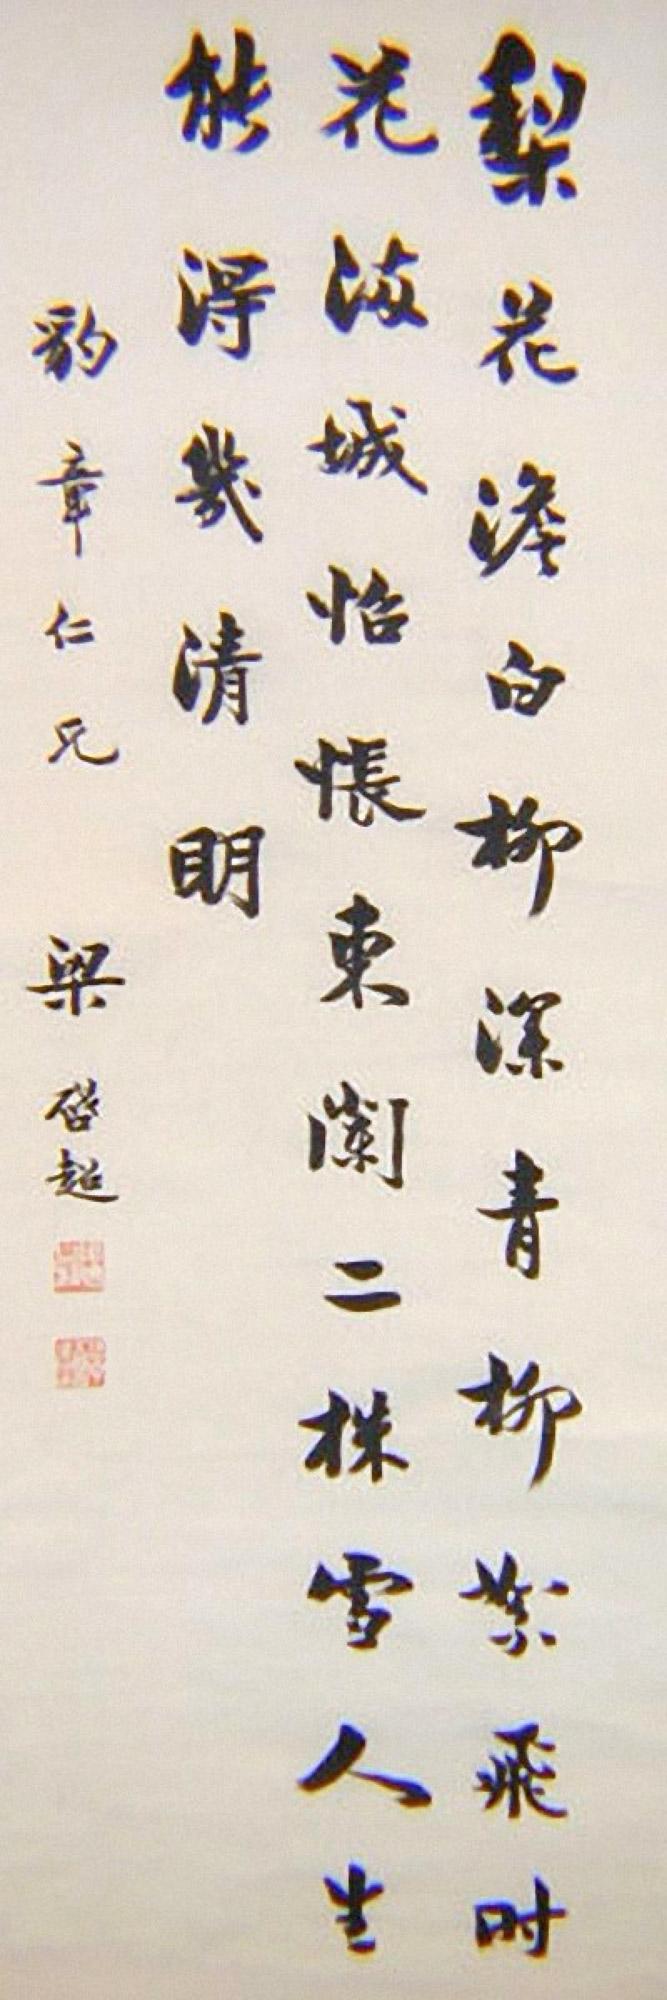 梨花澹白柳深青柳絮飛时
花滿城怡悵東闌二株雪人生
能得幾清明
豹章仁兄 梁啓超